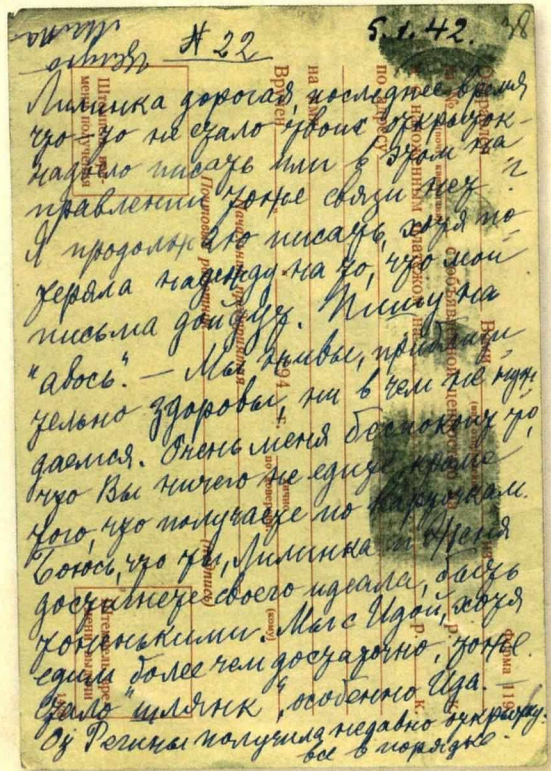 № 22
5.1.42.
38
Лилинка дорогая, последнее время
что-то не стало твоих открыток -
надоело писать или в этом на-
правлении тоже связи нет?
Я продолжаю писать, хотя по-
теряла надежду на то, что мои
письма дойдут. Пишу на
"авось". — Мы живы, приблизи-
тельно здоровы, ни в чем не нуж-
даемся. Очень меня беспокоит то,
что Вы ничего не едите, кроме
того, что получаете по карточкам.
Боюсь, что ты, Лилинка и Женя
достигнете своего идеала, быть
тоненькими. Мы с Идой, хотя
едим более чем достаточно, тоже
стало "шлянк", особенно Ида. —
От Регины получила недавно открытку.
все в порядке.